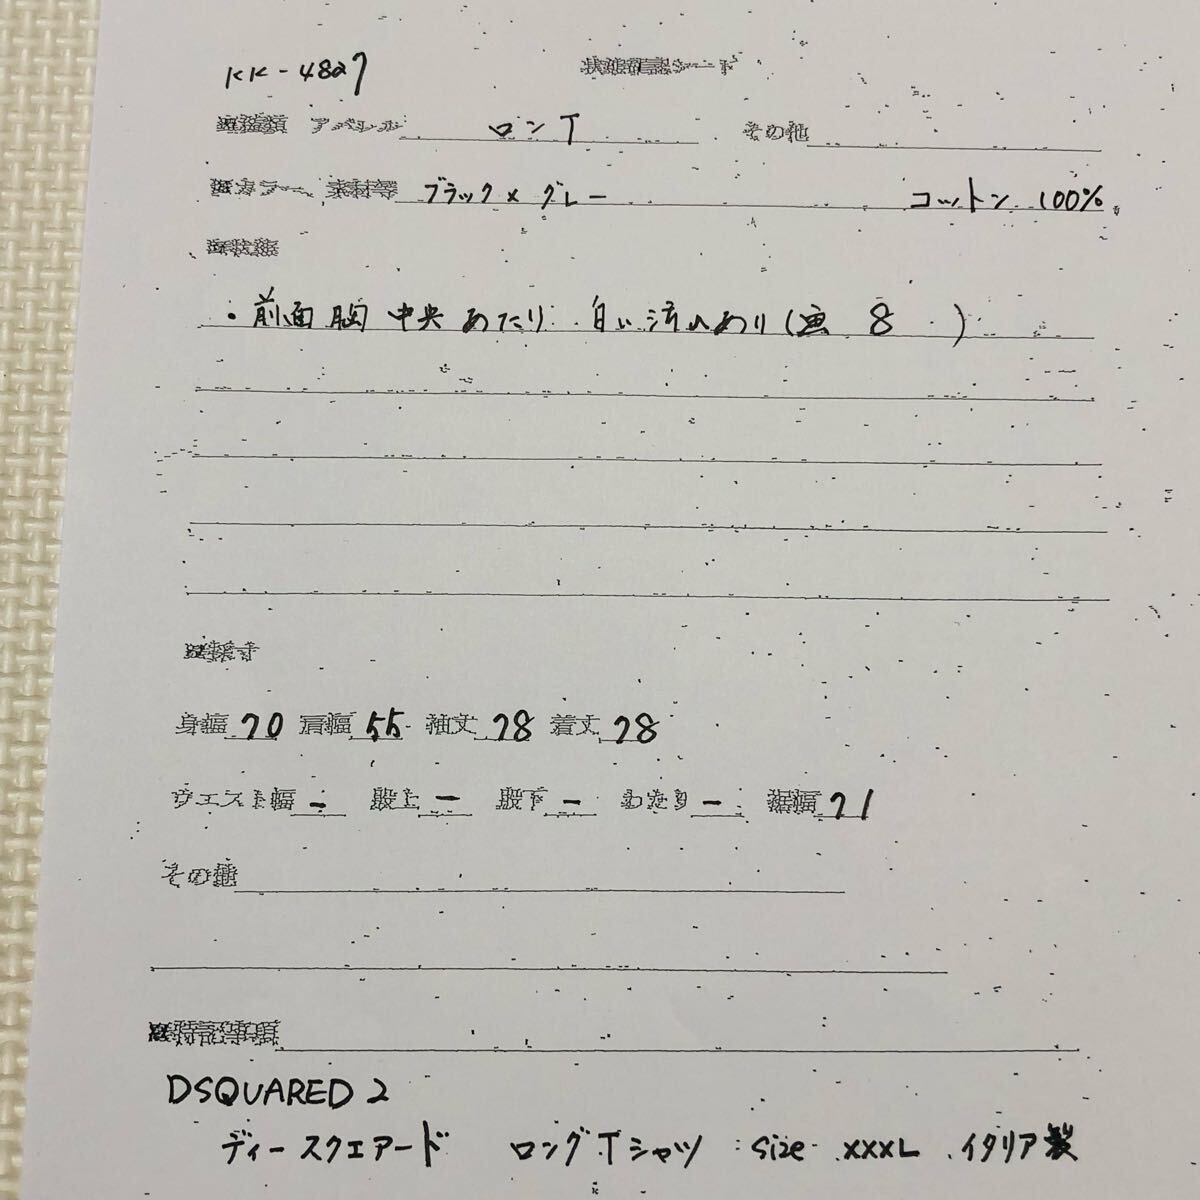 KK-4827
状態確認シート
アパレル ロンT その他
カラー、素材等 ブラック×グレー コットン 100%
・前面胸中央あたり 白い汚れあり(画 8 )
身幅 70 肩幅 55 袖丈 78 着丈 78
ウエスト幅 - 股上 - 股下 - わたり - 裾幅 71
その他
特記事項
DSQUARED2
ディースクエアード ロングTシャツ size XXXL イタリア製